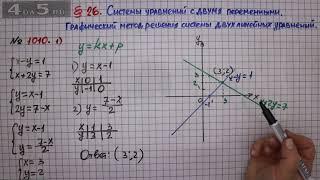 4 OT 5
§ 26. Системы уравнений с двумя переменными.
Графический метод решения системы двух линейных уравнений.
№ 1010. 1)
y = kx + p
{ x - y = 1
x + 2y = 7
1) y = x - 1
x | 0 | 1
y | -1 | 0
{ y = x - 1
2y = 7 - x
2) y = (7 - x)/2
x | 1 | 3
y | 3 | 2
{ y = x - 1
y = (7 - x)/2
{ x = 3
y = 2
Ответ: (3; 2)
y
(3; 2)
x - y = 1
x + 2y = 7
2
0
1
3
7
x
-1